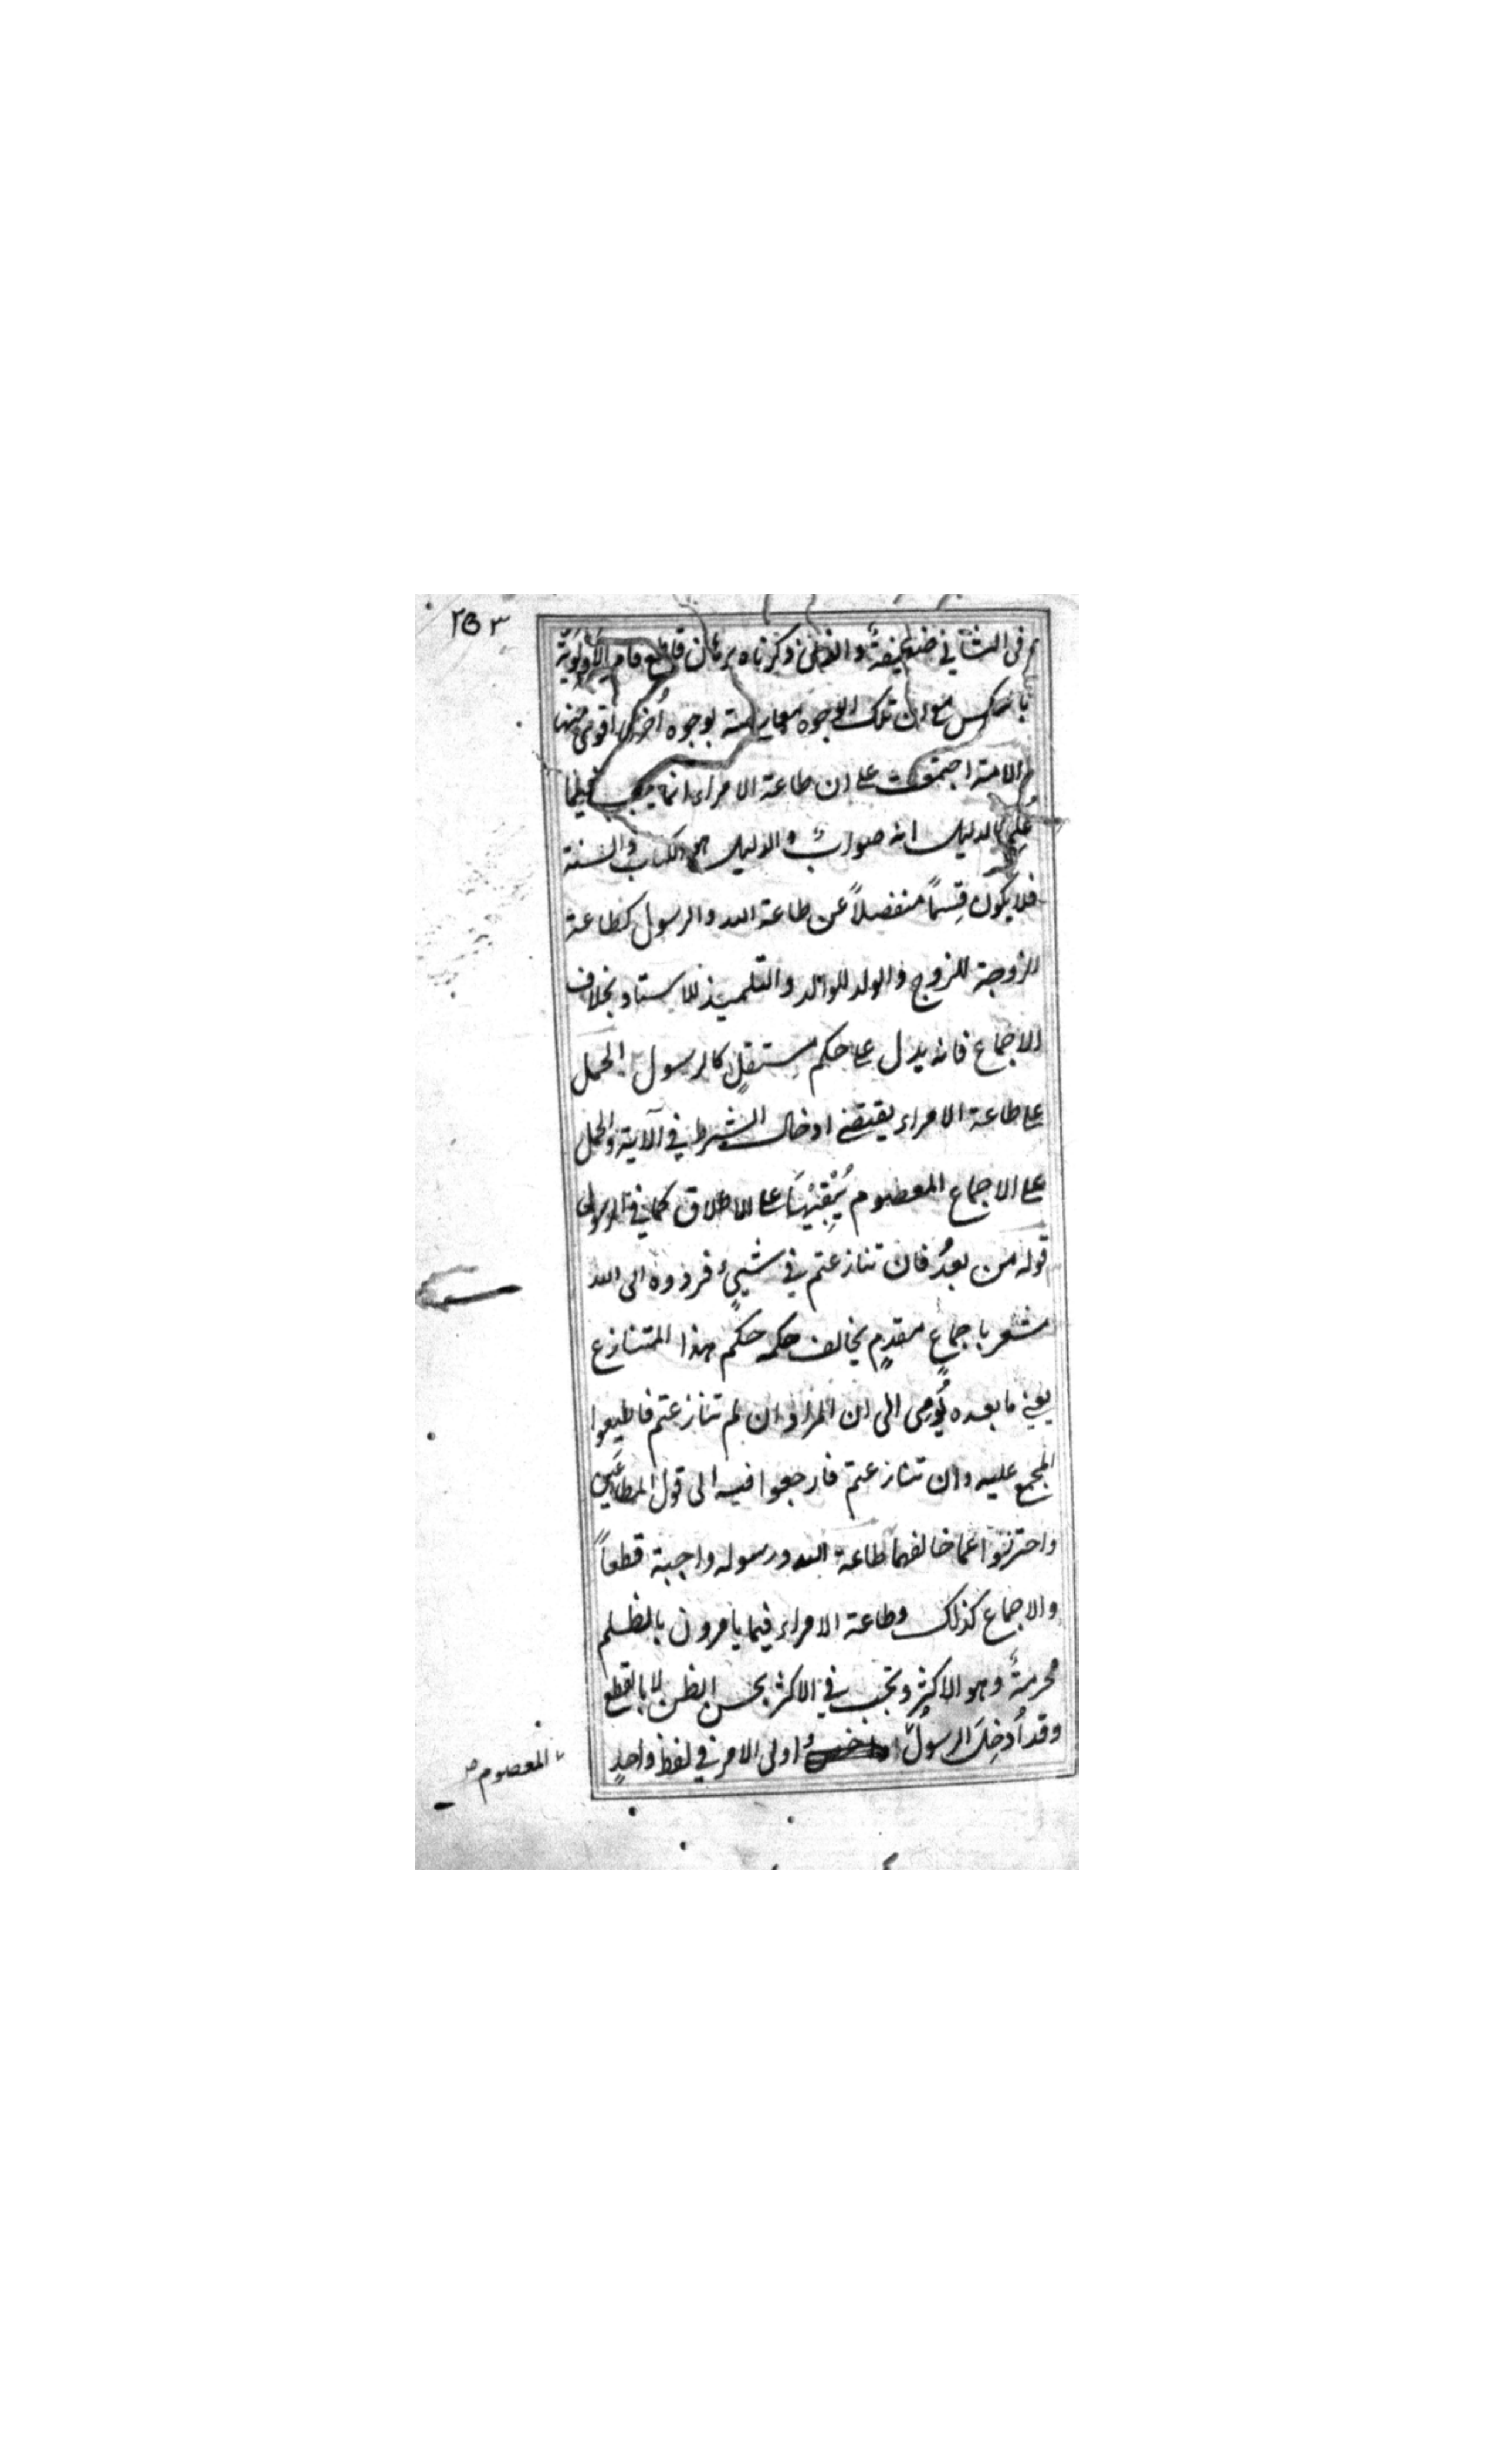 ٢٥٣
فى الثانى ضعيفةٌ والذى ذكرناه برهان قاطع فامر الاولويّة
بالعكس مع ان تلك الوجوه معارضة بوجوه اُخرى اقوى منها
الامة اجتمعت على ان طاعة الامراء انما يجب فيما
عُلِم بالدليل انه صوابٌ والدليل هو الكتاب والسنة
فلا يكون قِسماً منفصلاً عن طاعة الله والرسول كطاعة
الزوجة للزوج والولد للوالد والتلميذ للاستاد بخلاف
الاجماع فانه يدل على حكم مستقلٍ كالرسول الحمل
على طاعة الامراء يقتضى ادخال الشرط فى الآية والحمل
على الاجماع المعصوم يُبْقِيْهَا على الاطلاق كما فى الرسول
قوله من بعدُ فان تنازعتم فى شيىءٍ فردوه الى الله
مشعر باجماعٍ مقدمٍ يخالف حكمه حكم هذا المتنازع
يعنى ما بعده يُومى الى ان المراد ان لم تنازعتم فاطيعوا
المجمع عليه وان تنازعتم فارجعوا فيه الى قول المطاعَينِ
واحترزوا عما خالفهما طاعة الله ورسوله واجبة قطعاً
والاجماع كذلك وطاعة الامراء فيما يامرون بالظلم
محرمةٌ وهو الاكثر وتجب فى الاكثر بحسن الظن لا بالقطع
وقد اُدخِلَ الرسولُ اولى الامر فى لفظ واحدٍ
المعصوم